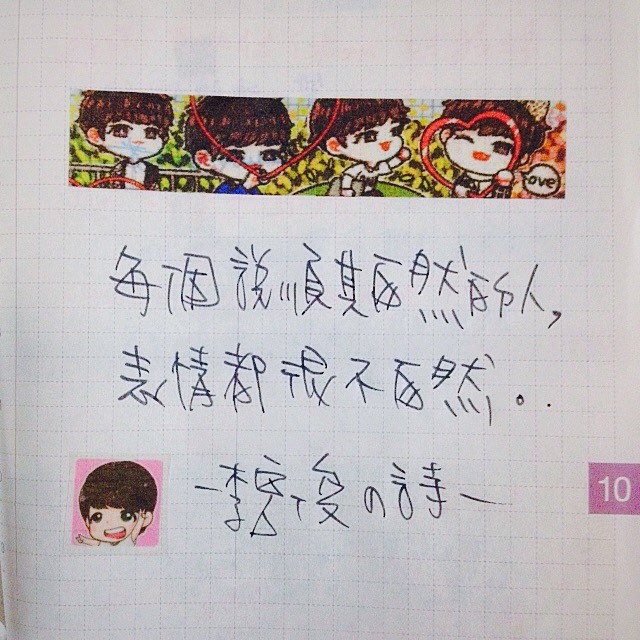 ove
每個說順其自然的人,
表情都很不自然..
-李宏俊の詩-
10